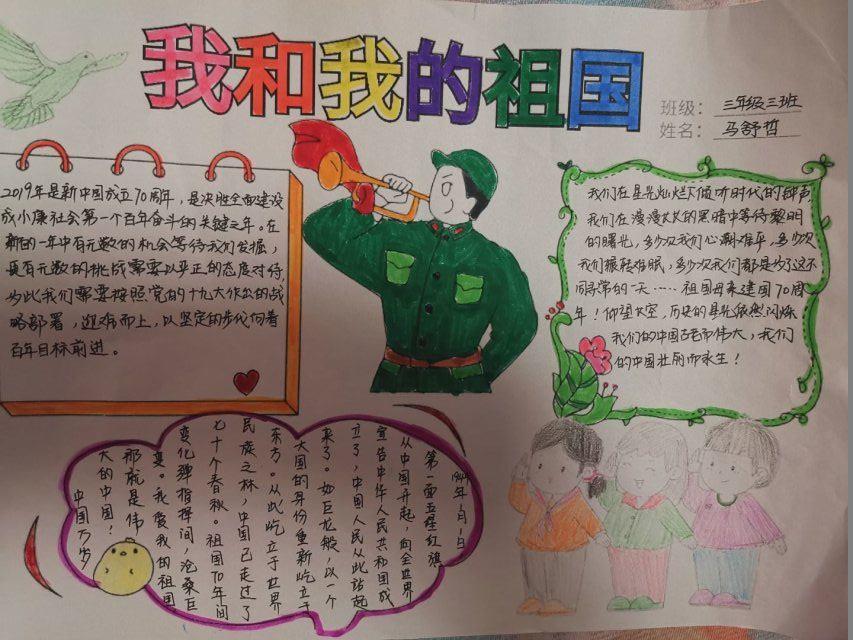 我和我的祖国
班级：三年级三班
姓名：马舒哲
2019年是新中国成立70周年，是决胜全面建设
成小康社会第一个百年奋斗的关键之年。在
新的一年中有无数的机会等待我们发掘，
更有无数的挑战需要以平正的态度对待，
为此我们需要按照党的十九大作出的战
略部署，迎难而上，以坚定的步伐向着
百年目标前进。
我们在星光灿烂下倾听时代的钟声
我们在漫漫长长的黑暗中等待黎明
的曙光，多少次我们心潮难平，多少次
我们辗转难眠，多少次我们都是为了这不
同寻常的一天……祖国母亲建国70周
年！仰望太空，历史的星光依然闪烁
我们的中国古老而伟大，我们
的中国壮丽而永生！
1949年10月1日
第一面五星红旗
从中国升起，向全世界
宣告中华人民共和国成
立了，中国人民从此站起
来了。如巨龙般，以一个
大国的身份重新屹立于
东方。从此屹立于世界
民族之林，中国已走过了
七十个春秋。祖国70年间
变化弹指挥间，沧桑巨
变。我爱我的祖国
那就是伟
大的中国！
中国万岁